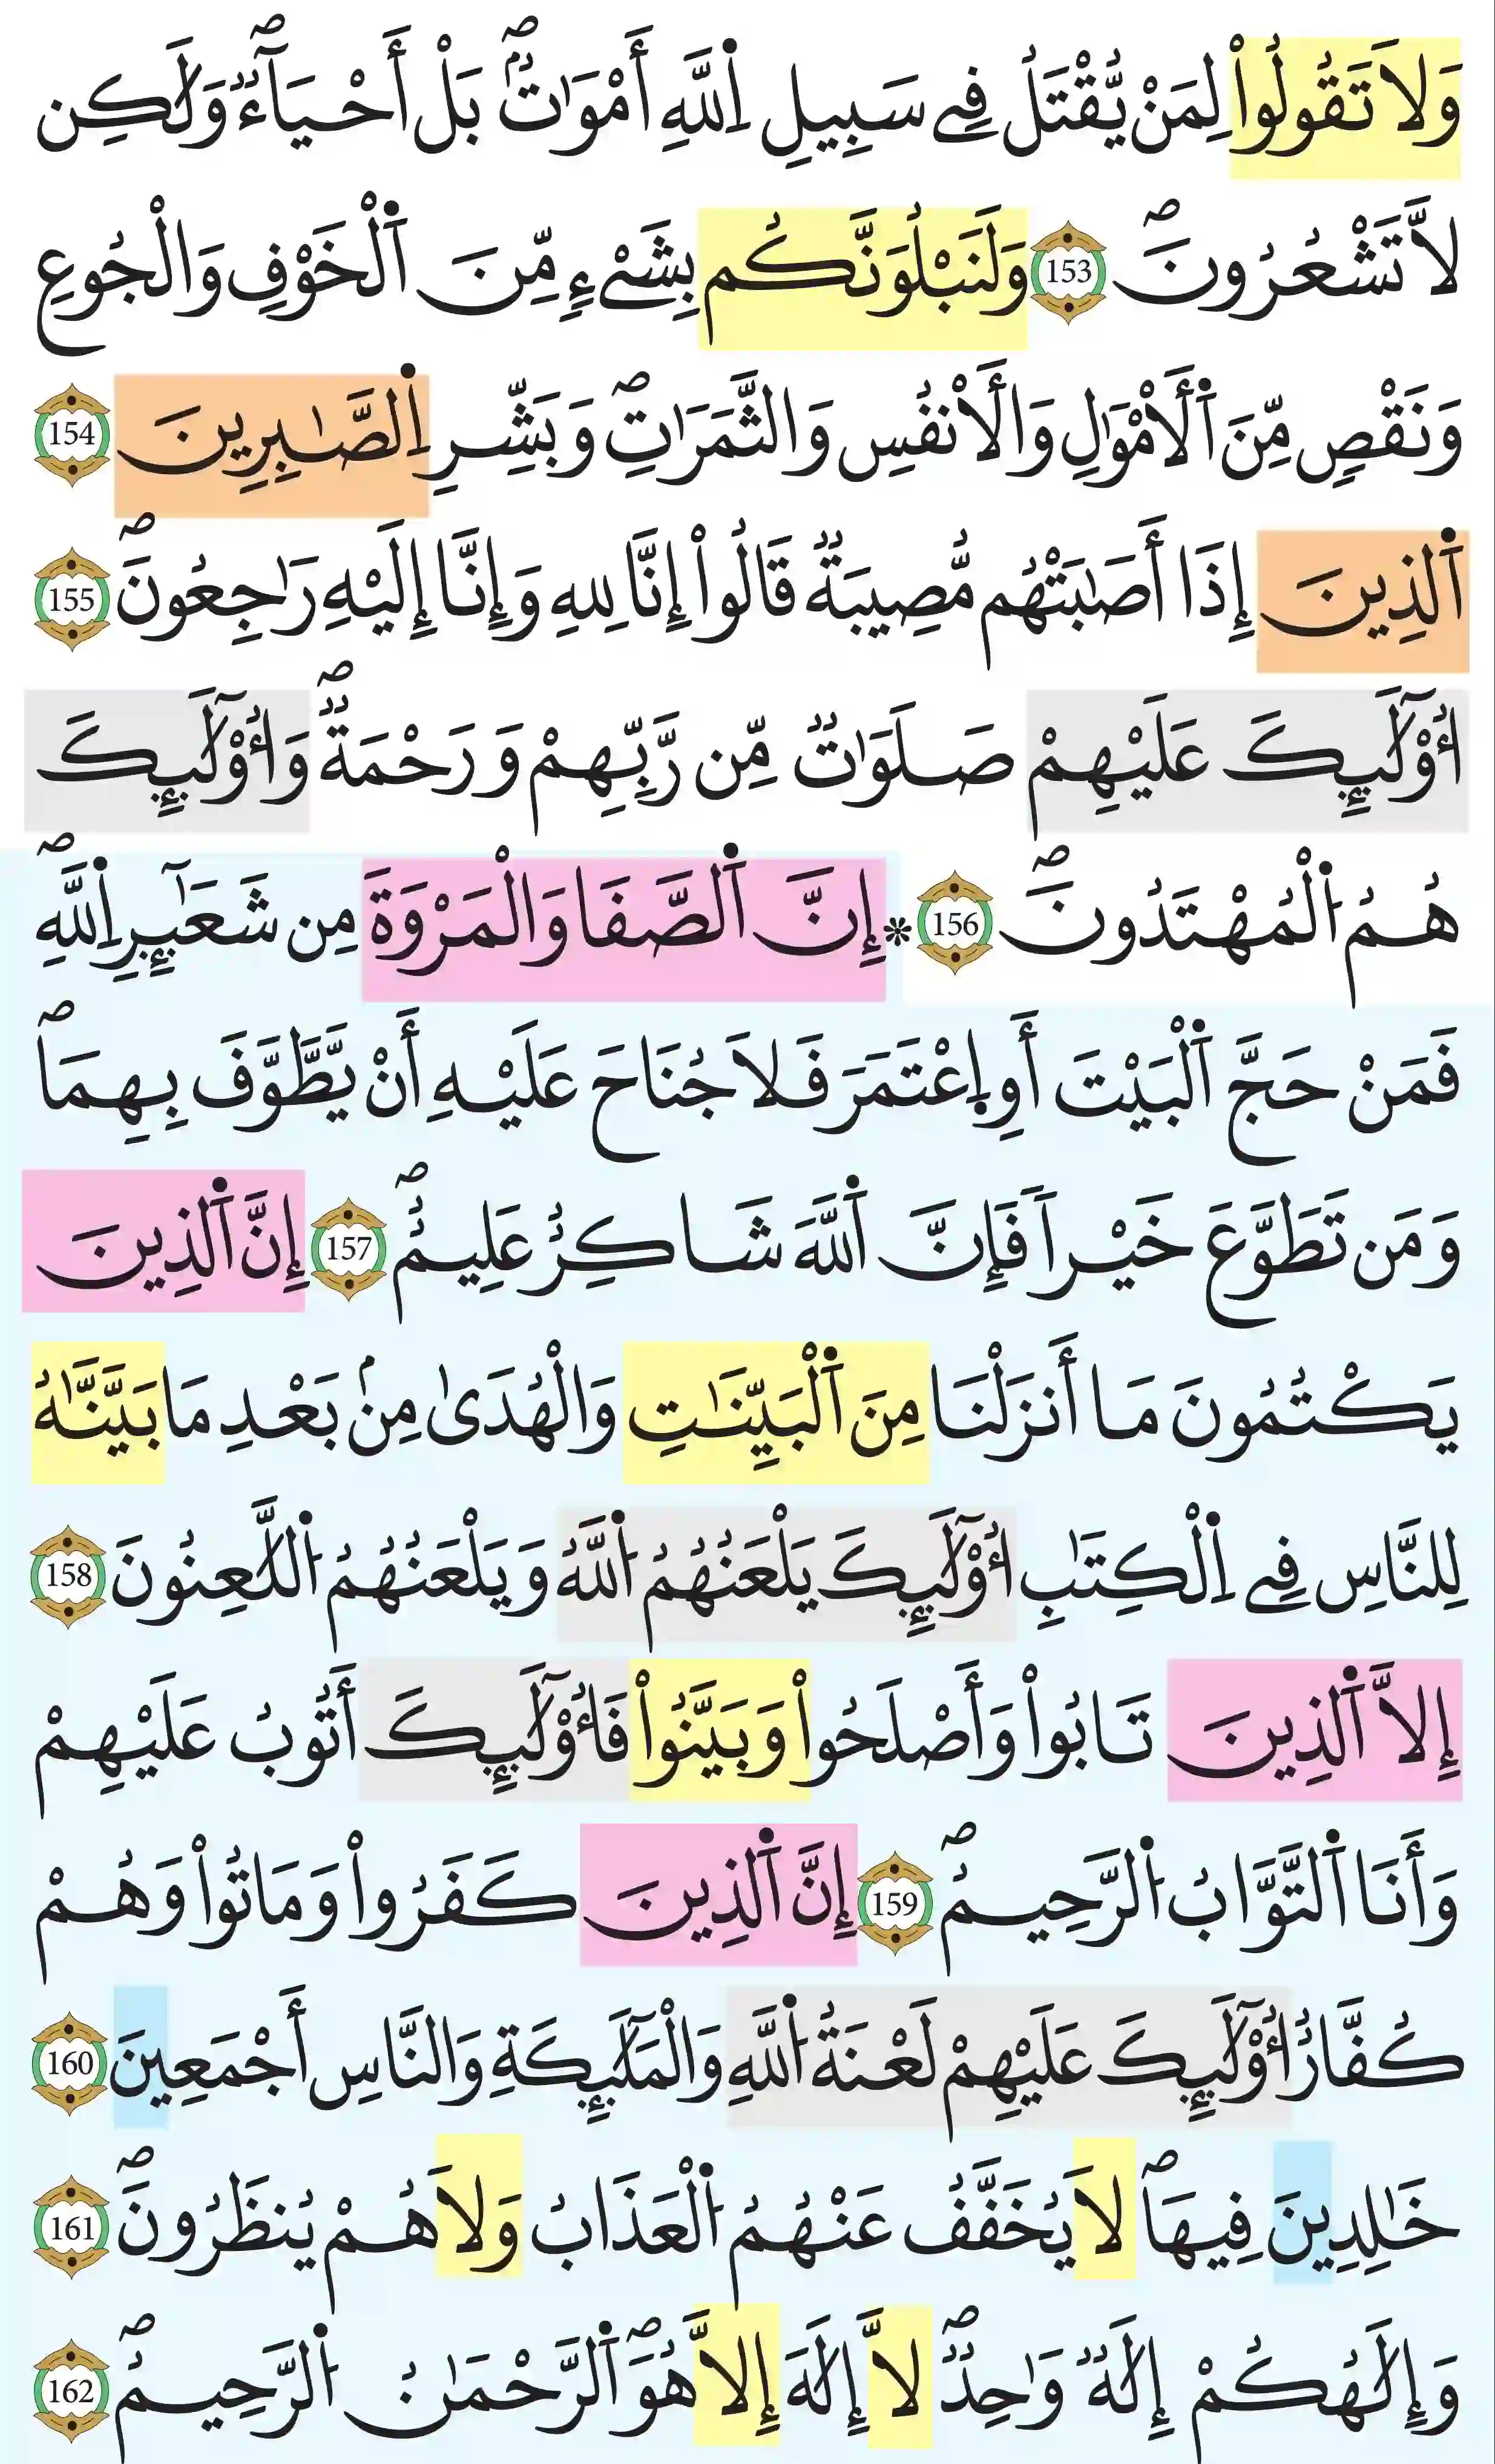 وَلَا تَقُولُواْ لِمَنْ يُّقْتَلُ فِے سَبِيلِ اِ۬للَّهِ أَمْوَٰتُۢۖ بَلْ أَحْيَآءٞۖ وَلَٰكِن
لَّا تَشْعُرُونَۖ 153 وَلَنَبْلُوَنَّكُم بِشَےْءٖ مِّنَ اَ۬لْخَوْفِ وَالْجُوعِ
وَنَقْصٖ مِّنَ اَ۬لَامْوَٰلِ وَالَانفُسِ وَالثَّمَرَٰتِۖ وَبَشِّرِ اِ۬لصَّٰبِرِينَ 154
اَ۬لذِينَ إِذَا أَصَٰبَتْهُم مُّصِيبَةٞ قَالُواْ إِنَّا لِلهِ وَإِنَّا إِلَيْهِ رَٰجِعُونَۖ 155
أُوْلَٰٓئِكَ عَلَيْهِمْ صَلَوَٰتٞ مِّن رَّبِّهِمْ وَرَحْمَةٞۖ وَأُوْلَٰٓئِكَ
هُمُ اُ۬لْمُهْتَدُونَۖ 156 * إِنَّ اَ۬لصَّفَا وَالْمَرْوَةَ مِن شَعَآئِرِ اِ۬للَّهِۖ
فَمَنْ حَجَّ اَ۬لْبَيْتَ أَوِ اِ۪عْتَمَرَ فَلَا جُنَاحَ عَلَيْهِ أَنْ يَّطَّوَّفَ بِهِمَاۖ
وَمَن تَطَوَّعَ خَيْراٗ فَإِنَّ اَ۬للَّهَ شَاكِرٌ عَلِيمٌۖ 157 إِنَّ اَ۬لذِينَ
يَكْتُمُونَ مَا أَنزَلْنَا مِنَ اَ۬لْبَيِّنَٰتِ وَالْهُدَىٰ مِنۢ بَعْدِ مَا بَيَّنَّٰهُ
لِلنَّاسِ فِے اِ۬لْكِتَٰبِ أُوْلَٰٓئِكَ يَلْعَنُهُمُ اُ۬للَّهُ وَيَلْعَنُهُمُ اُ۬للَّٰعِنُونَ 158
إِلَّا اَ۬لذِينَ تَابُواْ وَأَصْلَحُواْ وَبَيَّنُواْ فَأُوْلَٰٓئِكَ أَتُوبُ عَلَيْهِمْ
وَأَنَا اَ۬لتَّوَّابُ اُ۬لرَّحِيمُۖ 159 إِنَّ اَ۬لذِينَ كَفَرُواْ وَمَاتُواْ وَهُمْ
كُفَّارٌ أُوْلَٰٓئِكَ عَلَيْهِمْ لَعْنَةُ اُ۬للَّهِ وَالْمَلَٰٓئِكَةِ وَالنَّاسِ أَجْمَعِينَ 160
خَٰلِدِينَ فِيهَاۖ لَا يُخَفَّفُ عَنْهُمُ اُ۬لْعَذَابُ وَلَا هُمْ يُنظَرُونَۖ 161
وَإِلَٰهُكُمْ إِلَٰهٞ وَٰحِدٞۖ لَّا إِلَٰهَ إِلَّا هُوَۖ اَ۬لرَّحْمَٰنُ اُ۬لرَّحِيمُۖ 162